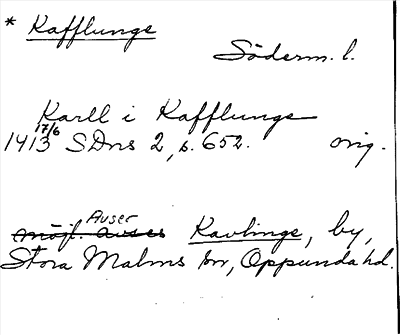 * Kafflunge
Söderm. l.
Karll i Kafflunge
1413 17/6 SDns 2, s. 652. orig.
Avser
möjl. avses Kavlinge, by,
Stora Malms sn, Oppunda hd.